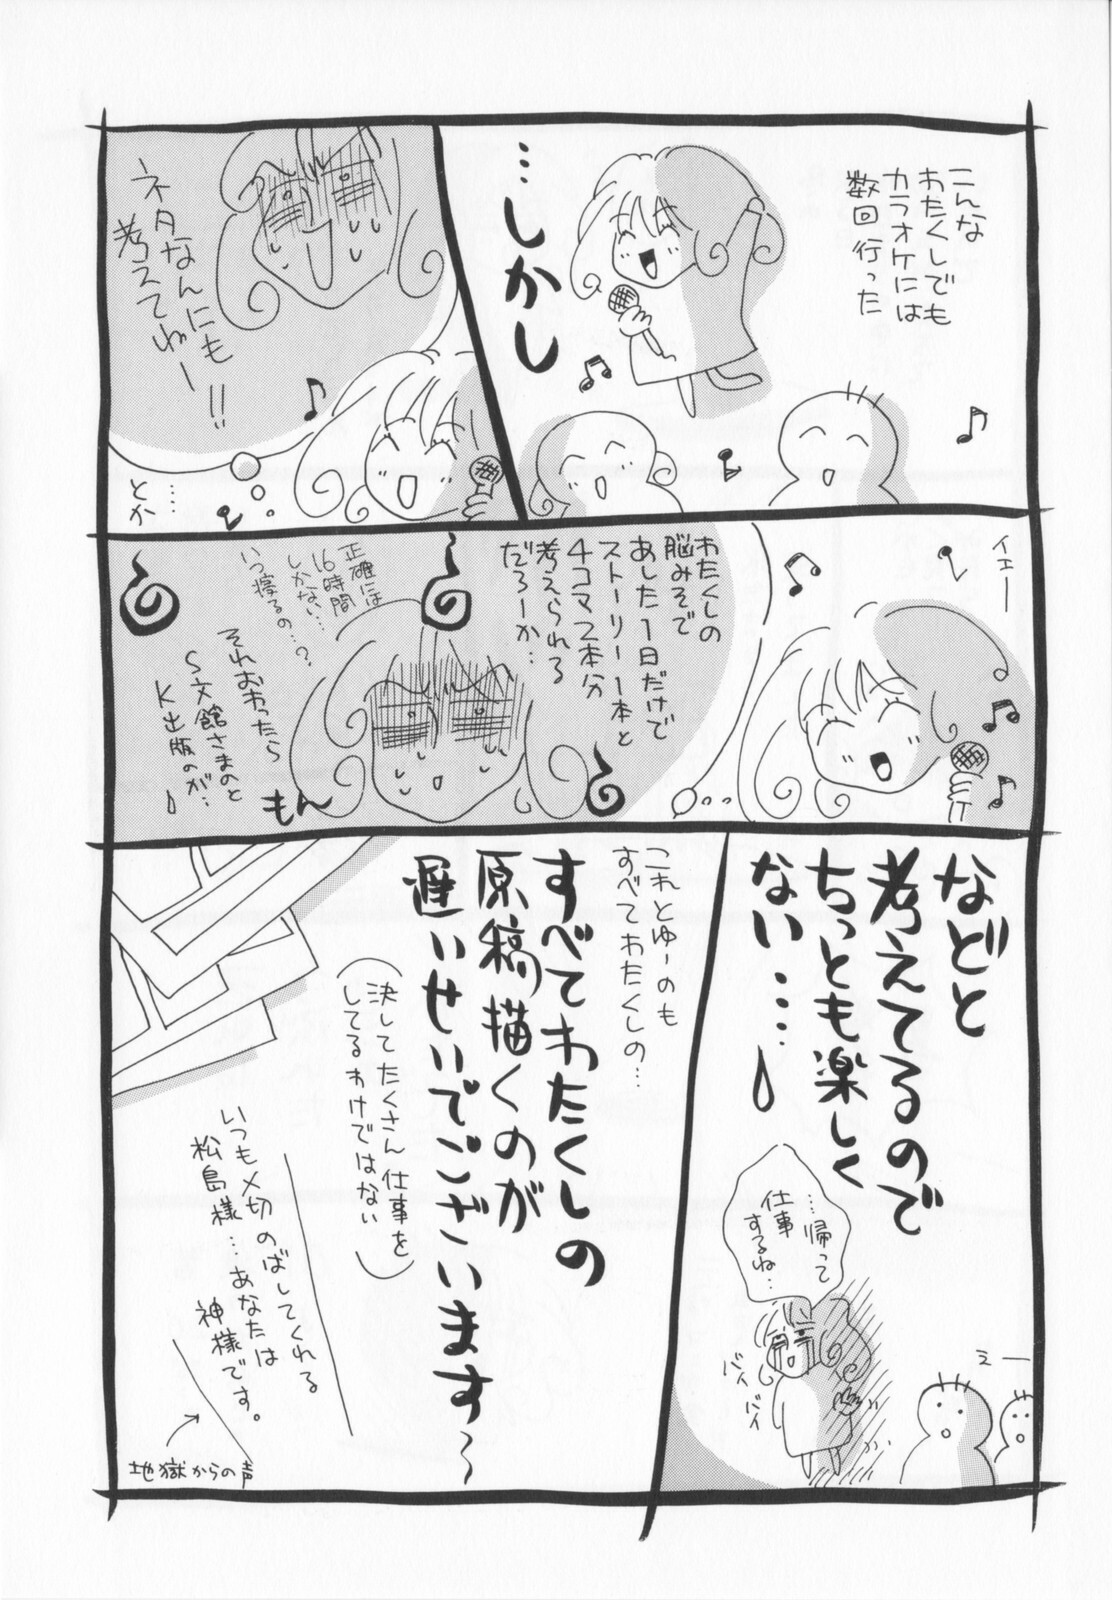 こんな
わたくしでも
カラオケには
数回 行った
…しかし
ネタなんにも
考えてねー!!
…とか
イェー
わたくしの
脳みそで
あした1日だけで
ストーリー1本と
4コマ2本分
考えられる
だろーか…
正確には
16時間
しかない…
いつ寝るの…?
それおわったら
S文館さまのと
K出版のが…
もん
などと
考えてるので
ちっとも楽しく
ない……
…帰って
仕事
するね…
バイ
バイ
えー
これとゆーのも
すべてわたくしの…
すべてわたくしの
原稿描くのが
遅いせいでございます～
(決してたくさん仕事を
してるわけではない)
いつも〆切のばしてくれる
松島様…あなたは
神様です。
地獄からの声